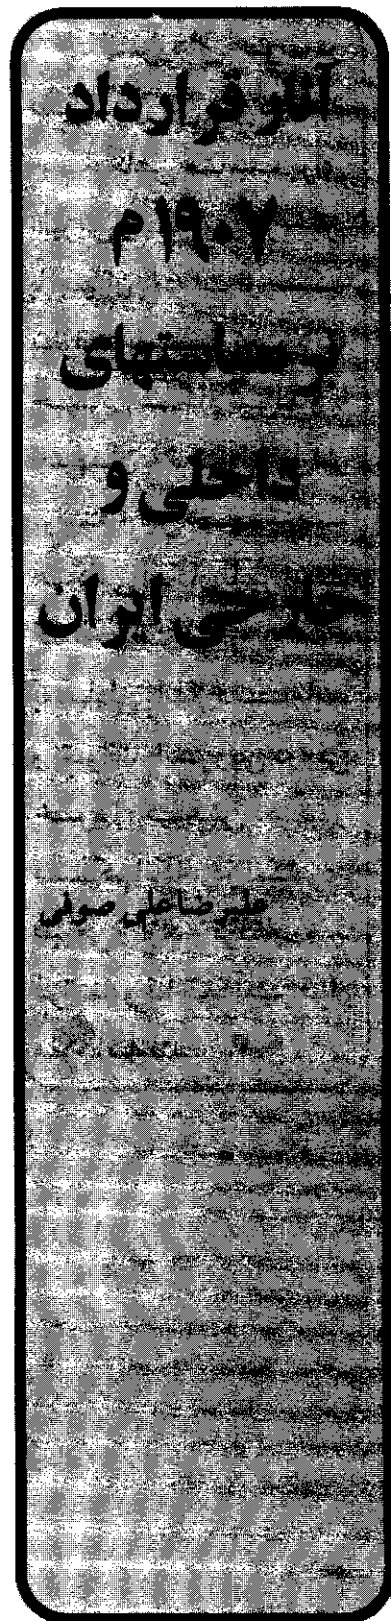 آثار قرارداد
۱۹۰۷م
بر سیاستهای
داخلی و
خارجی ایران
علیرضا علی صوفی